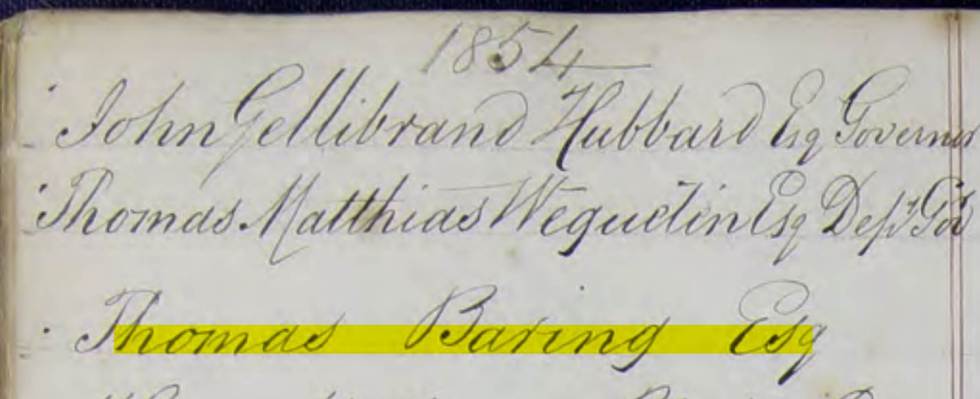 1854
John Gellibrand Hubbard Esq Governor
Thomas Matthias Weguelin Esq Depy Gov
Thomas Baring Esq